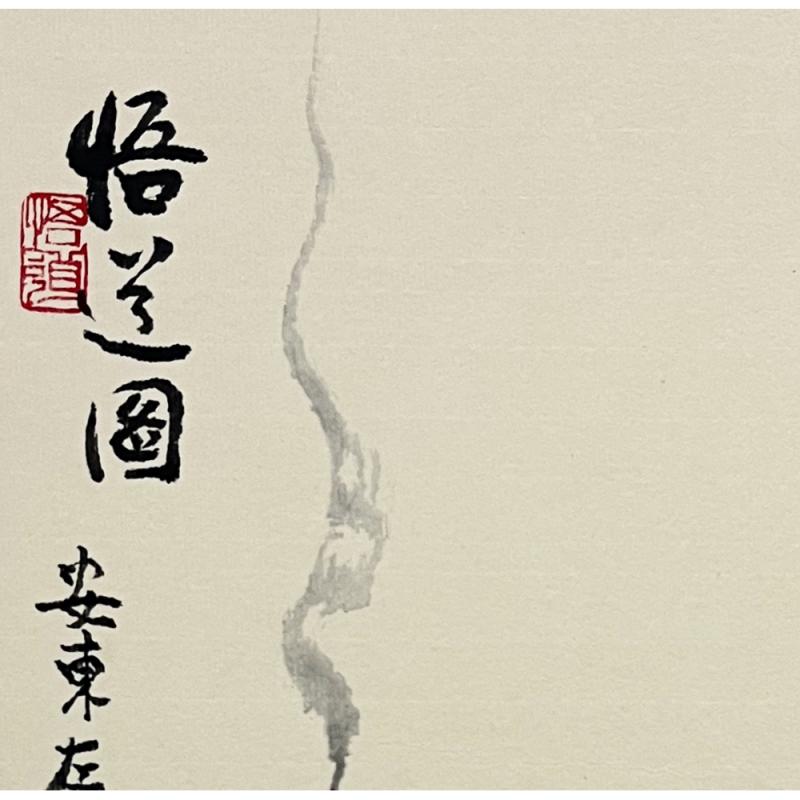 悟道圖
安東左
悟道